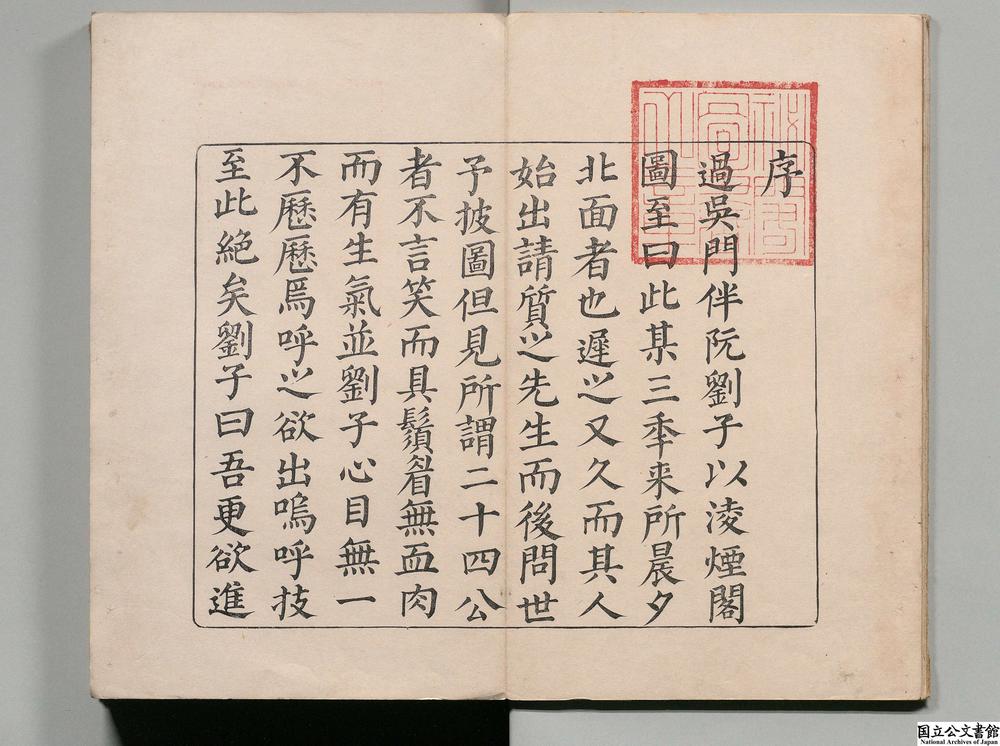 序
過吳門伴阮劉子以淩煙閣
圖至曰此某三秊来所晨夕
北面者也遲之又久而其人
始出請質之先生而後問世
予披圖但見所謂二十四公
者不言笑而具鬚眉無血肉
而有生氣並劉子心目無一
不歷歷焉呼之欲出嗚呼技
至此絕矣劉子曰吾更欲進
国立公文書館
National Archives of Japan